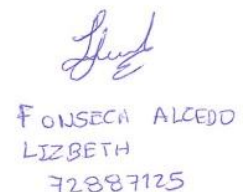 FONSECA ALCEDO
LIZBETH
72887125